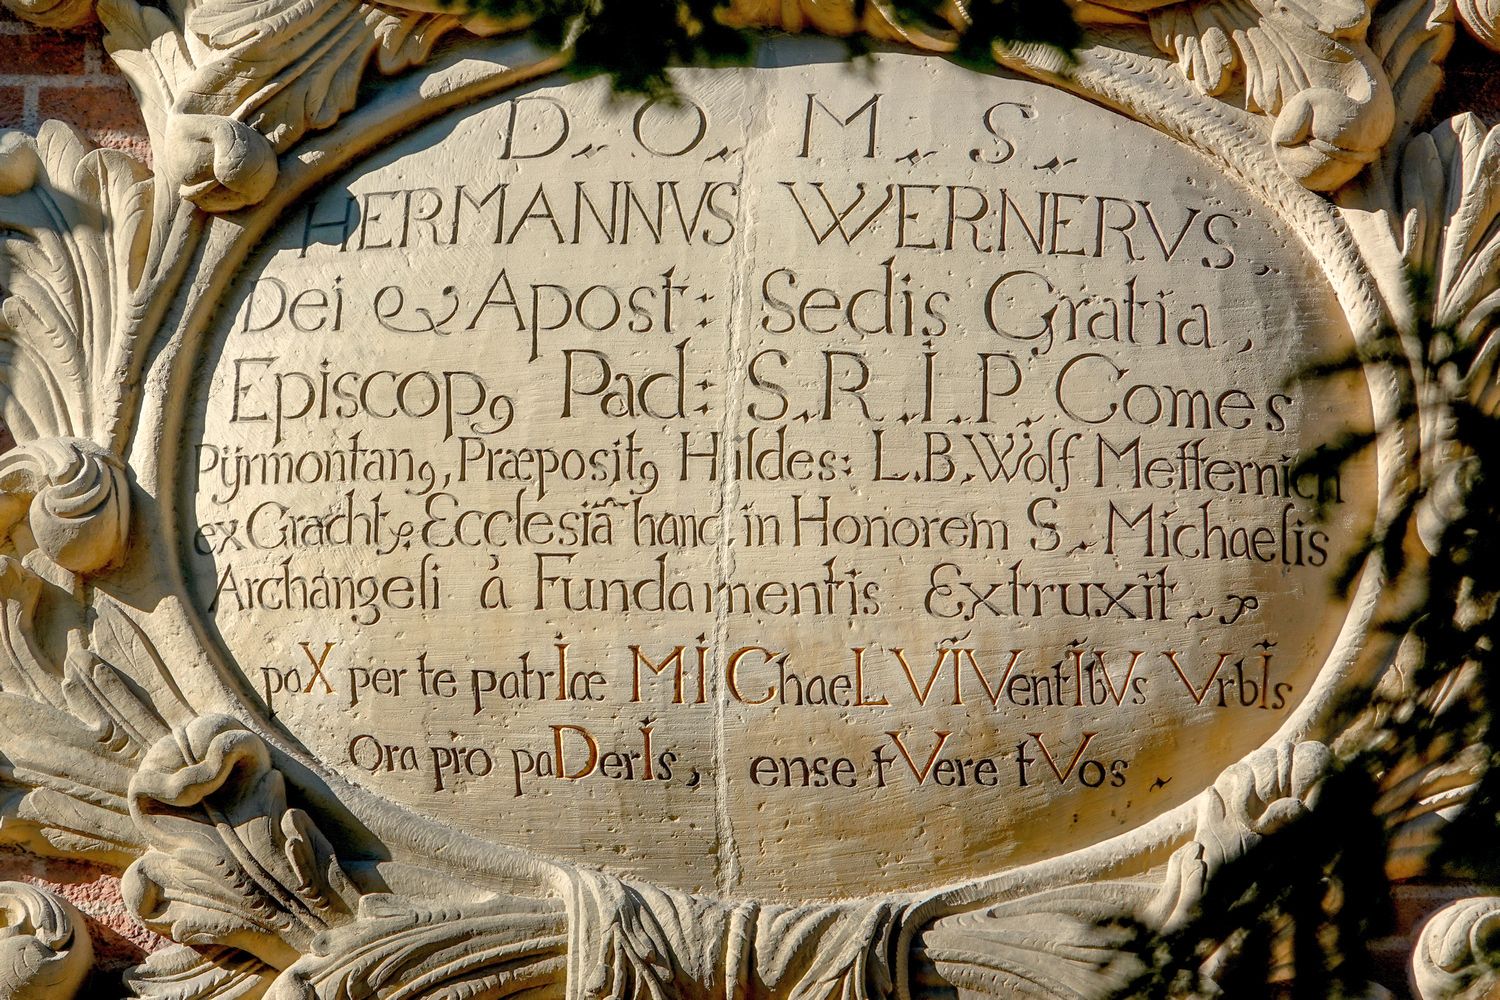 D. O. M. S.
HERMANNVS WERNERVS.
Dei & Apost: Sedis Gratia,
Episcopꝰ Pad: S. R. I. P. Comes
Pÿrmontanꝰ, Præpositꝰ Hildes: L. B. Wolf Metternich
ex Gracht, Ecclesiã hanc in Honorem S. Michaelis
Archangeli à Fundamentis Extruxit.
paX per te patrIæ MIChaeL VIVentIbVs VrbIs
Ora pro paDerIs, ense tVere tVos.